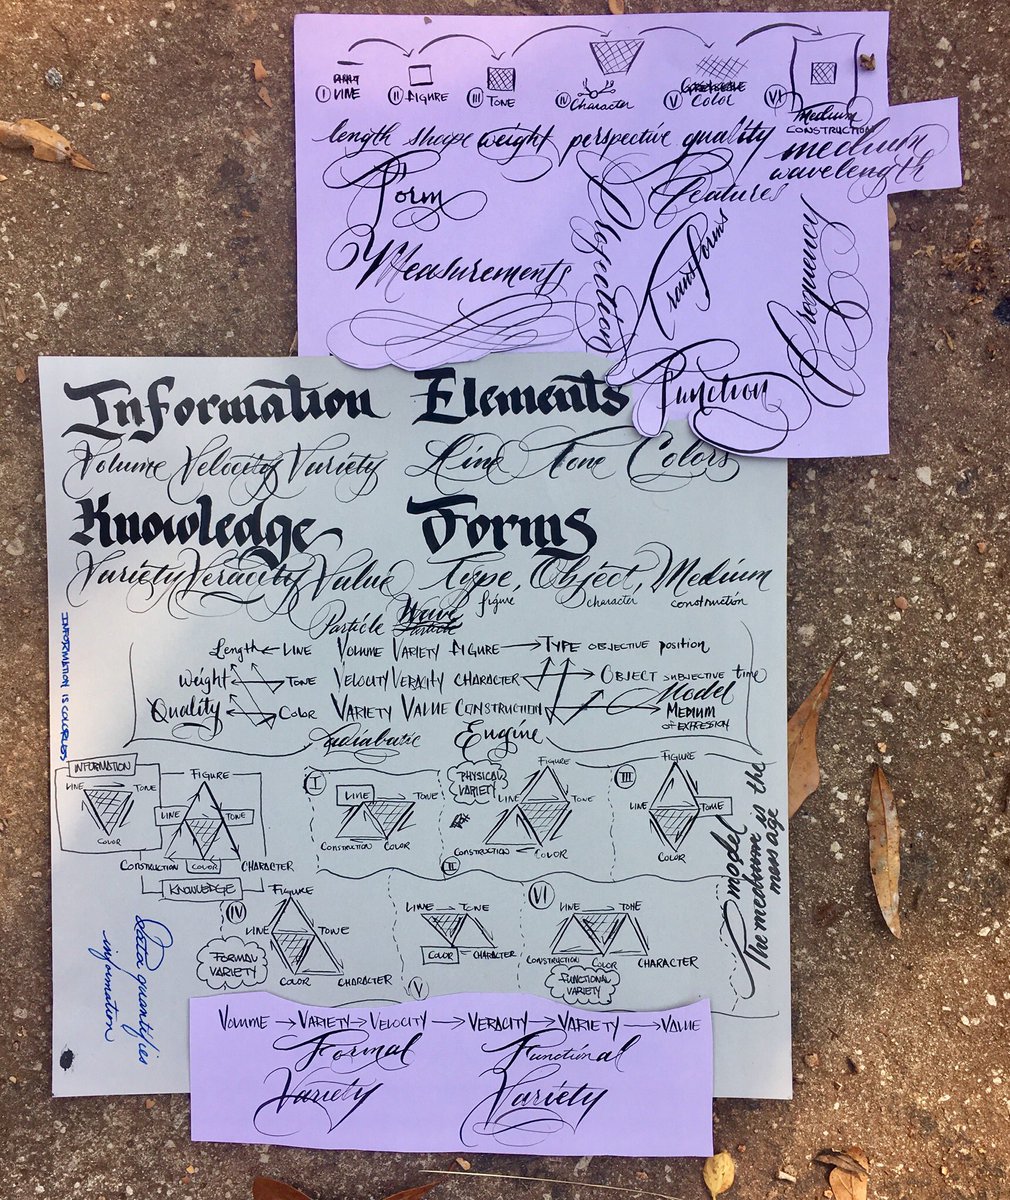 I LINE II FIGURE III TONE IV Character V COLOR VI Medium
CONSTRUCTION
length shape weight perspective quality medium
wavelength
Form Features
Measurements Projections Transforms Frequency
Function
Information Elements
Volume Velocity Variety Line Tone Colors
Knowledge Forms
Variety Veracity Value Type, Object, Medium
figure character construction
Particle Wave Particle
Length LINE VOLUME VARIETY FIGURE TYPE OBJECTIVE POSITION
Weight TONE VELOCITY VERACITY CHARACTER OBJECT SUBJECTIVE time
Model
Quality COLOR VARIETY VALUE CONSTRUCTION MEDIUM
OF EXPRESSION
Engine
INFORMATION IS COLORLESS
INFORMATION
LINE TONE
COLOR
FIGURE
LINE TONE
CONSTRUCTION COLOR CHARACTER
KNOWLEDGE
I
LINE TONE
CONSTRUCTION COLOR
PHYSICAL
VARIETY
FIGURE
LINE TONE
II CONSTRUCTION COLOR
III
FIGURE
LINE TONE
COLOR
model
The medium is the
message
IV
FIGURE
LINE TONE
FORMAL
VARIETY
COLOR CHARACTER
LINE TONE
COLOR CHARACTER
V
VI
LINE TONE
CONSTRUCTION COLOR CHARACTER
FUNCTIONAL
VARIETY
Data quantifies
information
VOLUME VARIETY VELOCITY VERACITY VARIETY VALUE
Formal Functional
Variety Variety